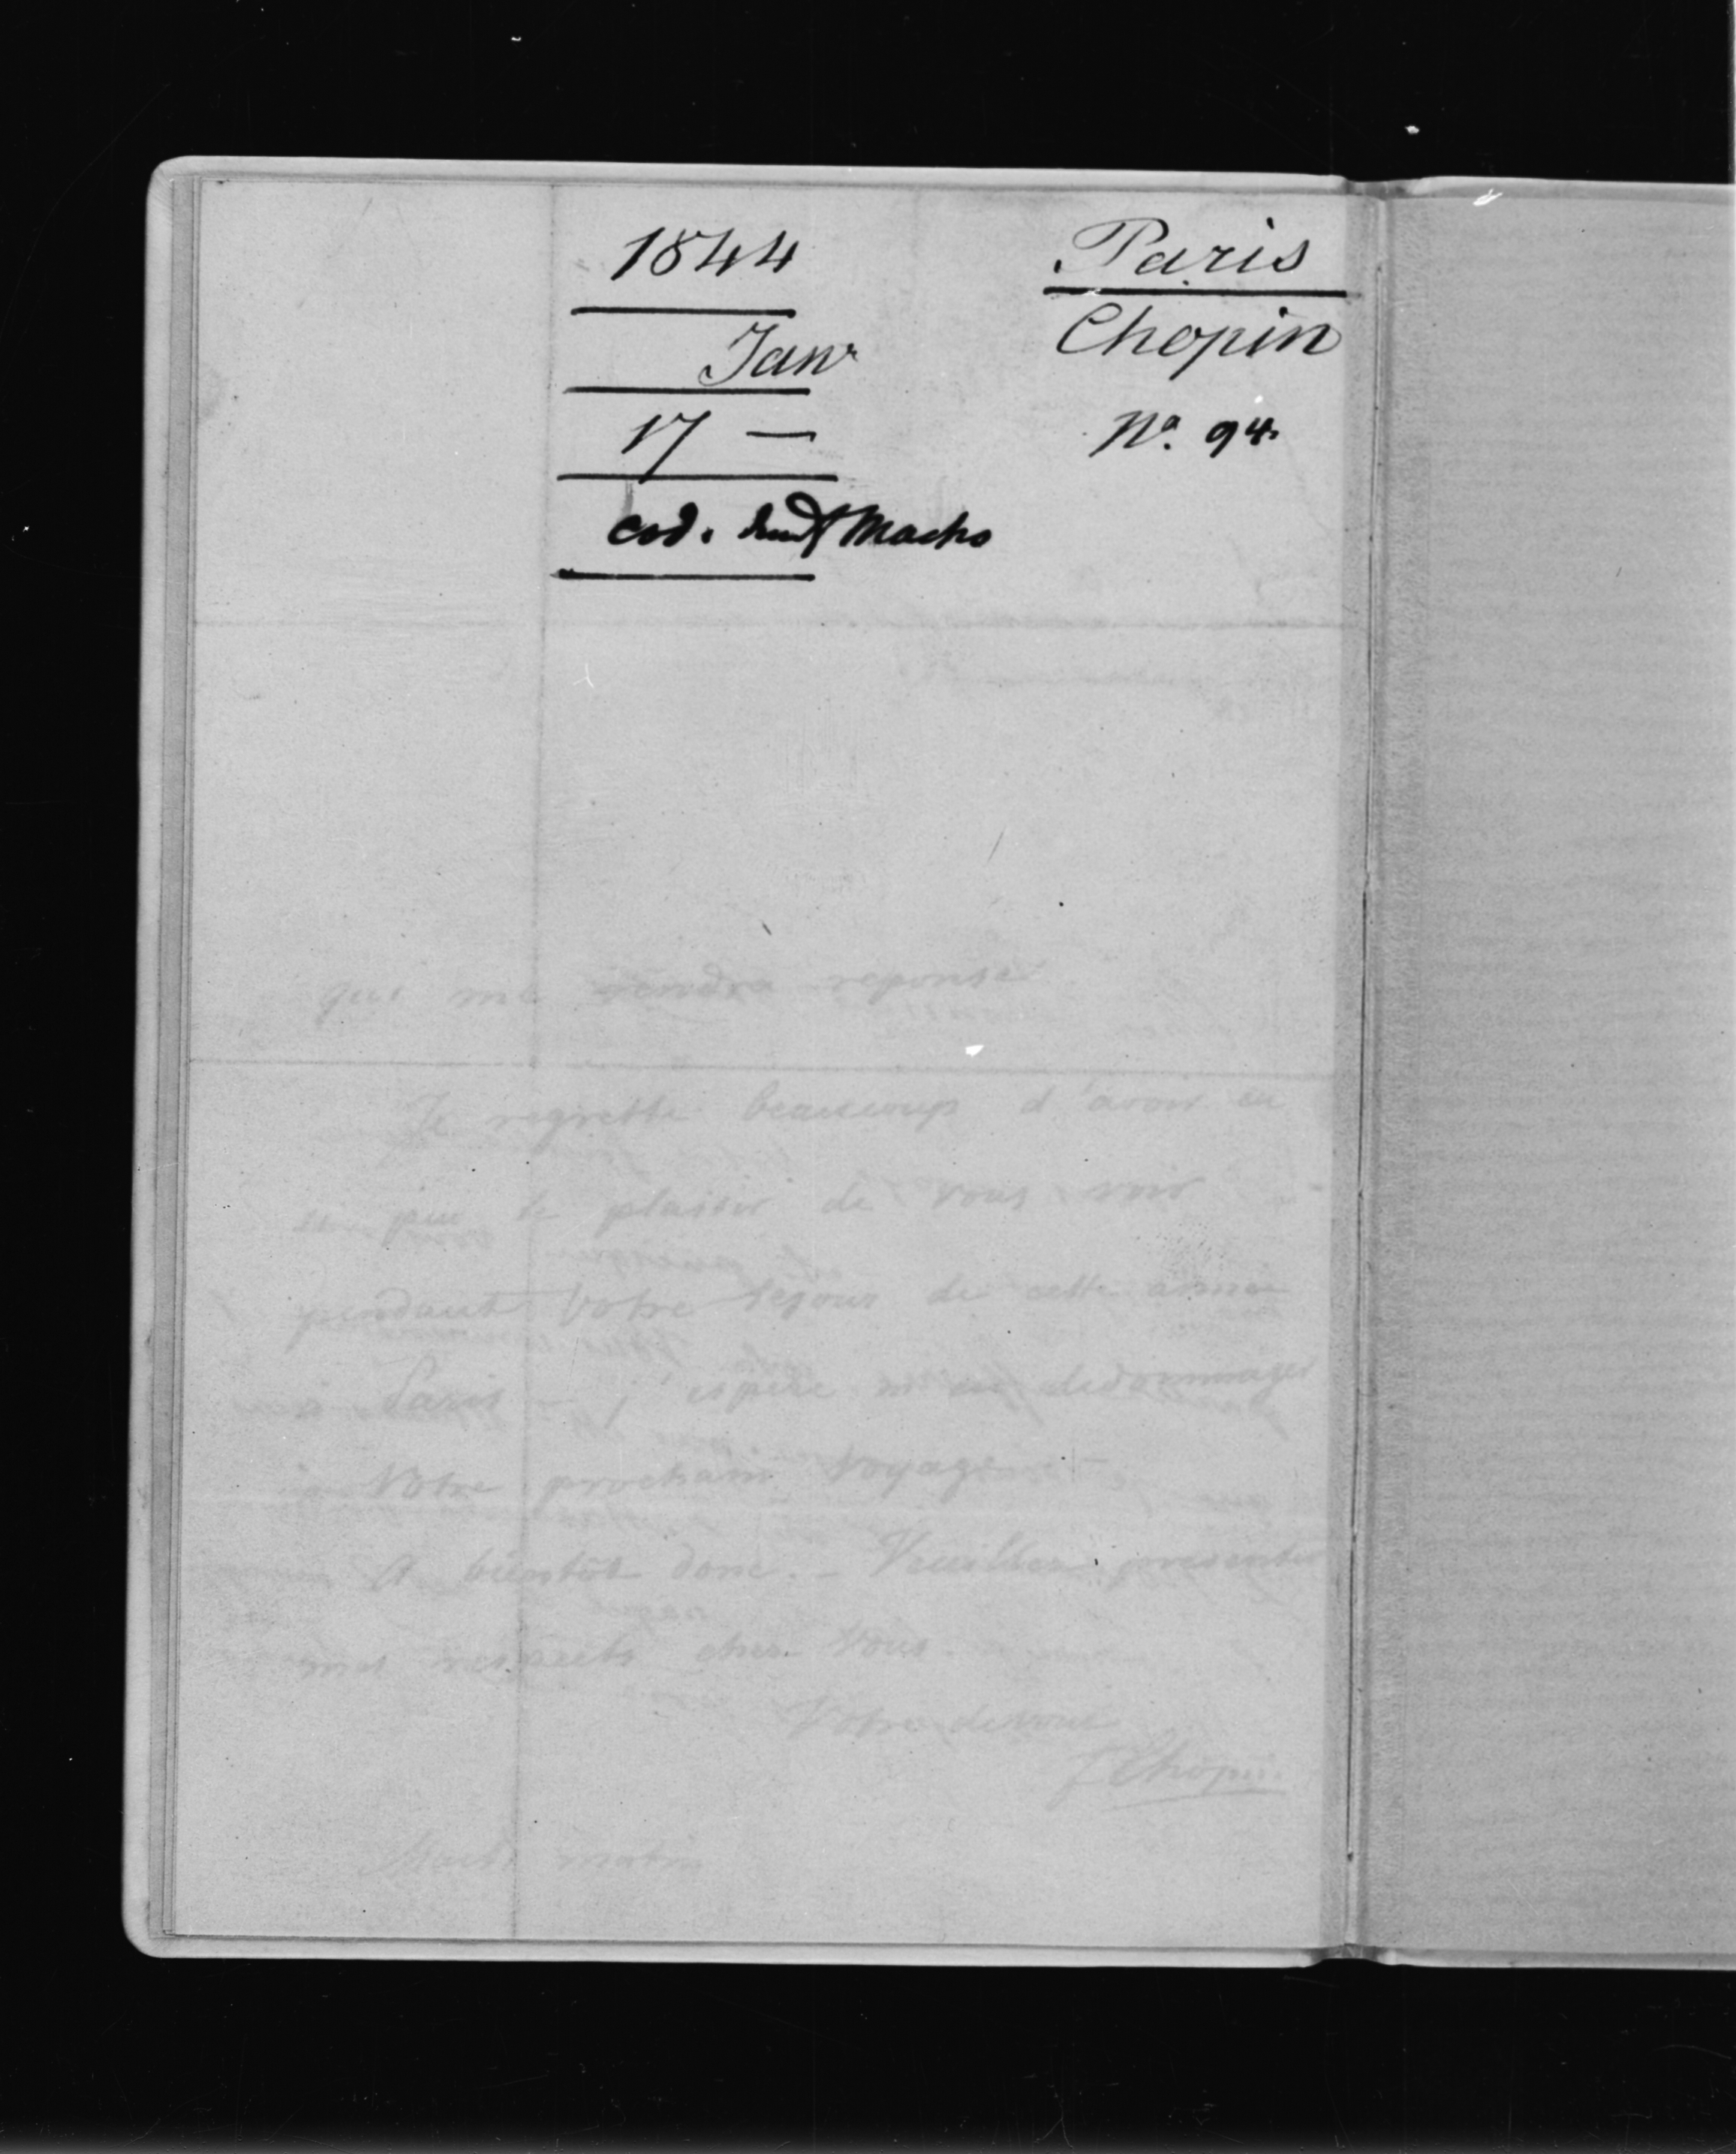 1844
Janr
17 —
Paris
Chopin
No. 94.
que me rendra reponse
Je regrette beaucoup d'avoir eu
si peu le plaisir de vous voir
pendant Votre sejour de cette année
à Paris - j'espère m'en dedommager
à Votre prochain voyage -
A bientôt donc. - Veuillez presenter
mes respects chez Vous
Votre devoué
FChopin.
Mardi matin